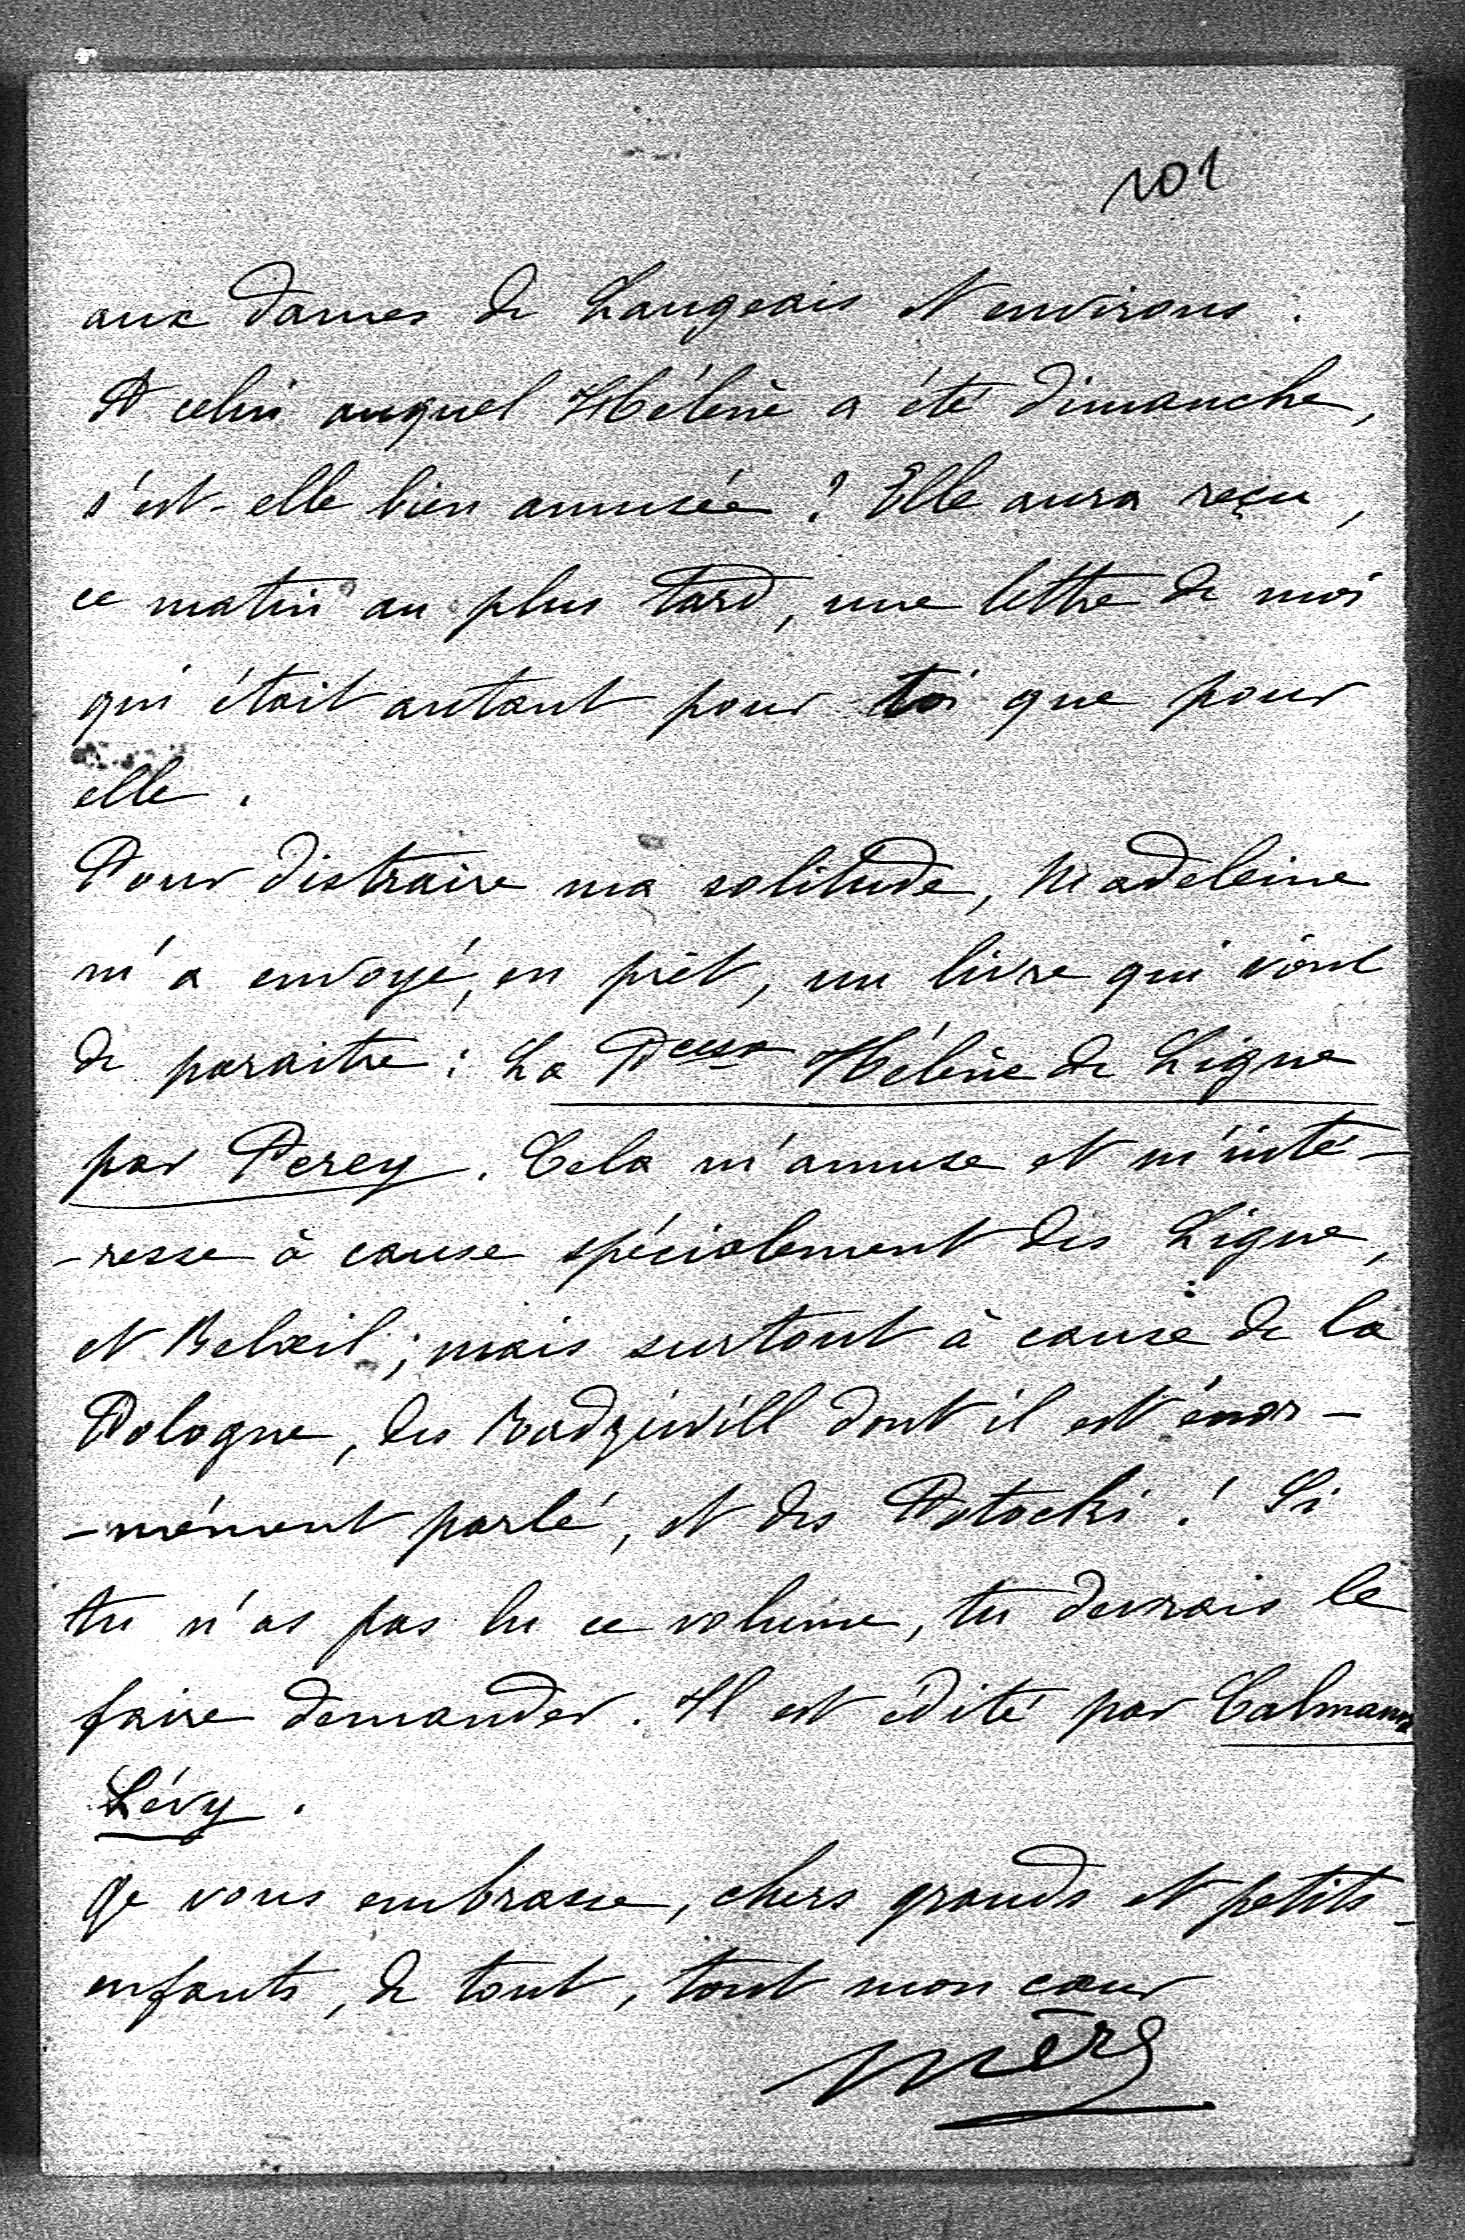 101
aux dames de Langeais et environs.
Et celui auquel Hélène a été dimanche,
s'est-elle bien amusée ? Elle aura reçu,
ce matin au plus tard, une lettre de moi
qui était autant pour toi que pour
elle.
Pour distraire ma solitude, Madeleine
m'a envoyé, en prêt, un livre qui vient
de paraitre : La Pcesse Hélène de Ligne
par Perey. Cela m'amuse et m'inté-
-resse à cause spécialement des Ligne,
et Belœil ; mais surtout à cause de la
Pologne, des Radziwill dont il est énor-
-mément parlé, et des Potocki ! Si
tu n'as pas lu ce volume, tu devrais le
faire demander. Il est édité par Calmann
Lévy.
Je vous embrasse, chers grands et petits-
enfants, de tout, tout mon cœur
Mère